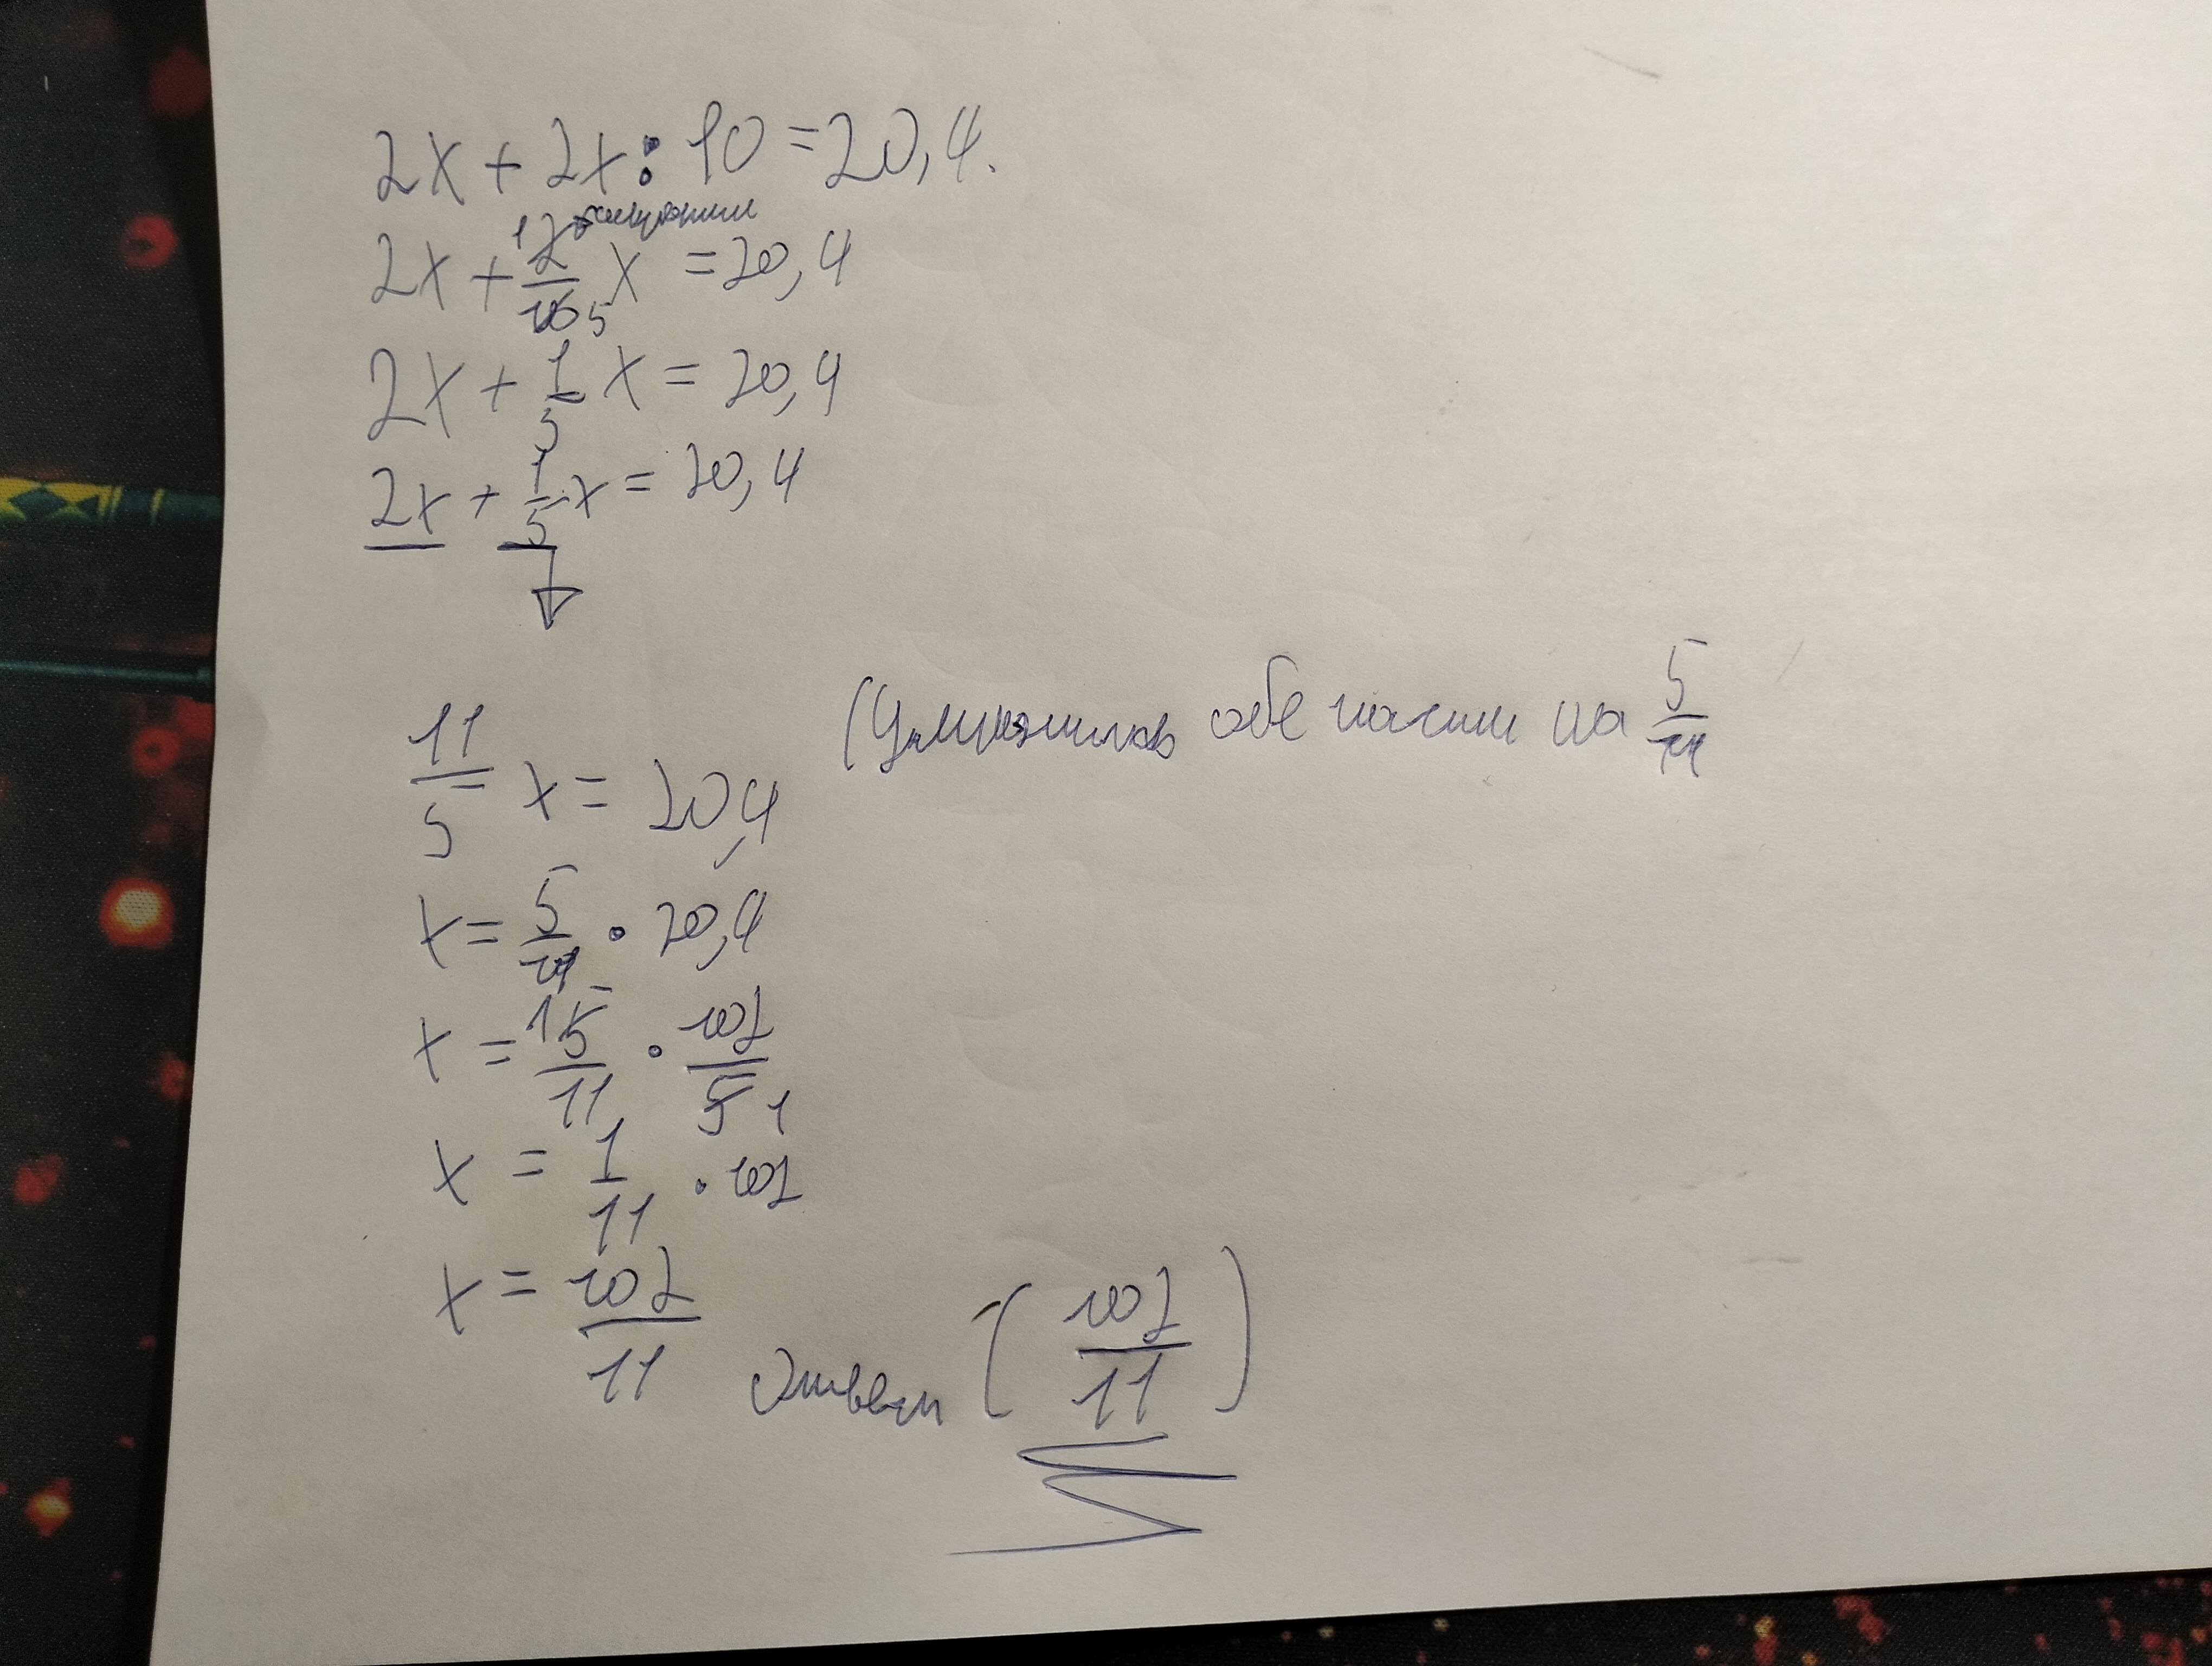 2x + 2x : 10 = 20,4.
сократим
2x + 2/10 x = 20,4
1 5
2x + 1/5 x = 20,4
2x + 1/5 x = 20,4
11/5 x = 20,4 (Умножить обе части на 5/11
x = 5/11 · 20,4
x = 5/11 · 102/5
1 1
x = 1/11 · 102
x = 102/11 Ответ (102/11)